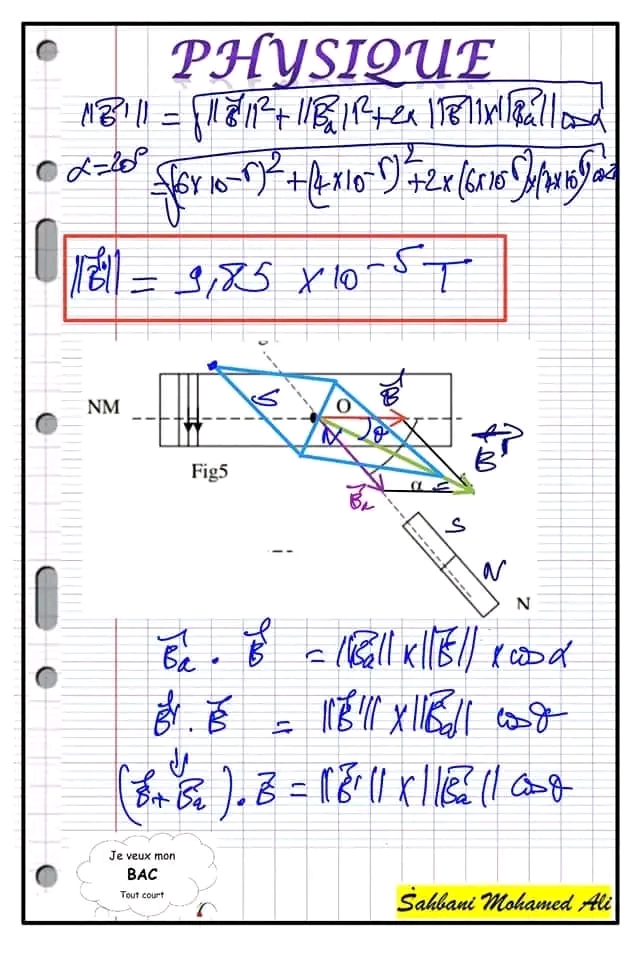 PHYSIQUE
||B⃗'|| = √(||B⃗||² + ||B⃗a||² + 2x ||B⃗|| x ||B⃗a|| cosα
α = 20°
= √(6x10⁻⁵)² + (4x10⁻⁵)² + 2x(6x10⁻⁵)x(4x10⁻⁵) cos
||B⃗'|| = 9,85 x 10⁻⁵ T
NM S O B⃗
N θ B⃗'
Fig5
B⃗a α
S
N
N
B⃗a . B⃗ = ||B⃗a|| x ||B⃗|| x cosα
B⃗' . B⃗ = ||B⃗'|| x ||B⃗a|| cosθ
(B⃗ + B⃗a) . B⃗ = ||B⃗'|| x ||B⃗a|| cosθ
Je veux mon
BAC
Tout court
Sahbani Mohamed Ali